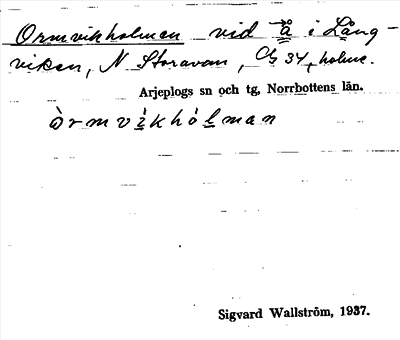 Ormvikholmen vid å i Lång-
viken, N Storavan, 34, holme.
Arjeplogs sn och tg, Norrbottens län.
òrmvikhólman
Sigvard Wallström, 1937.